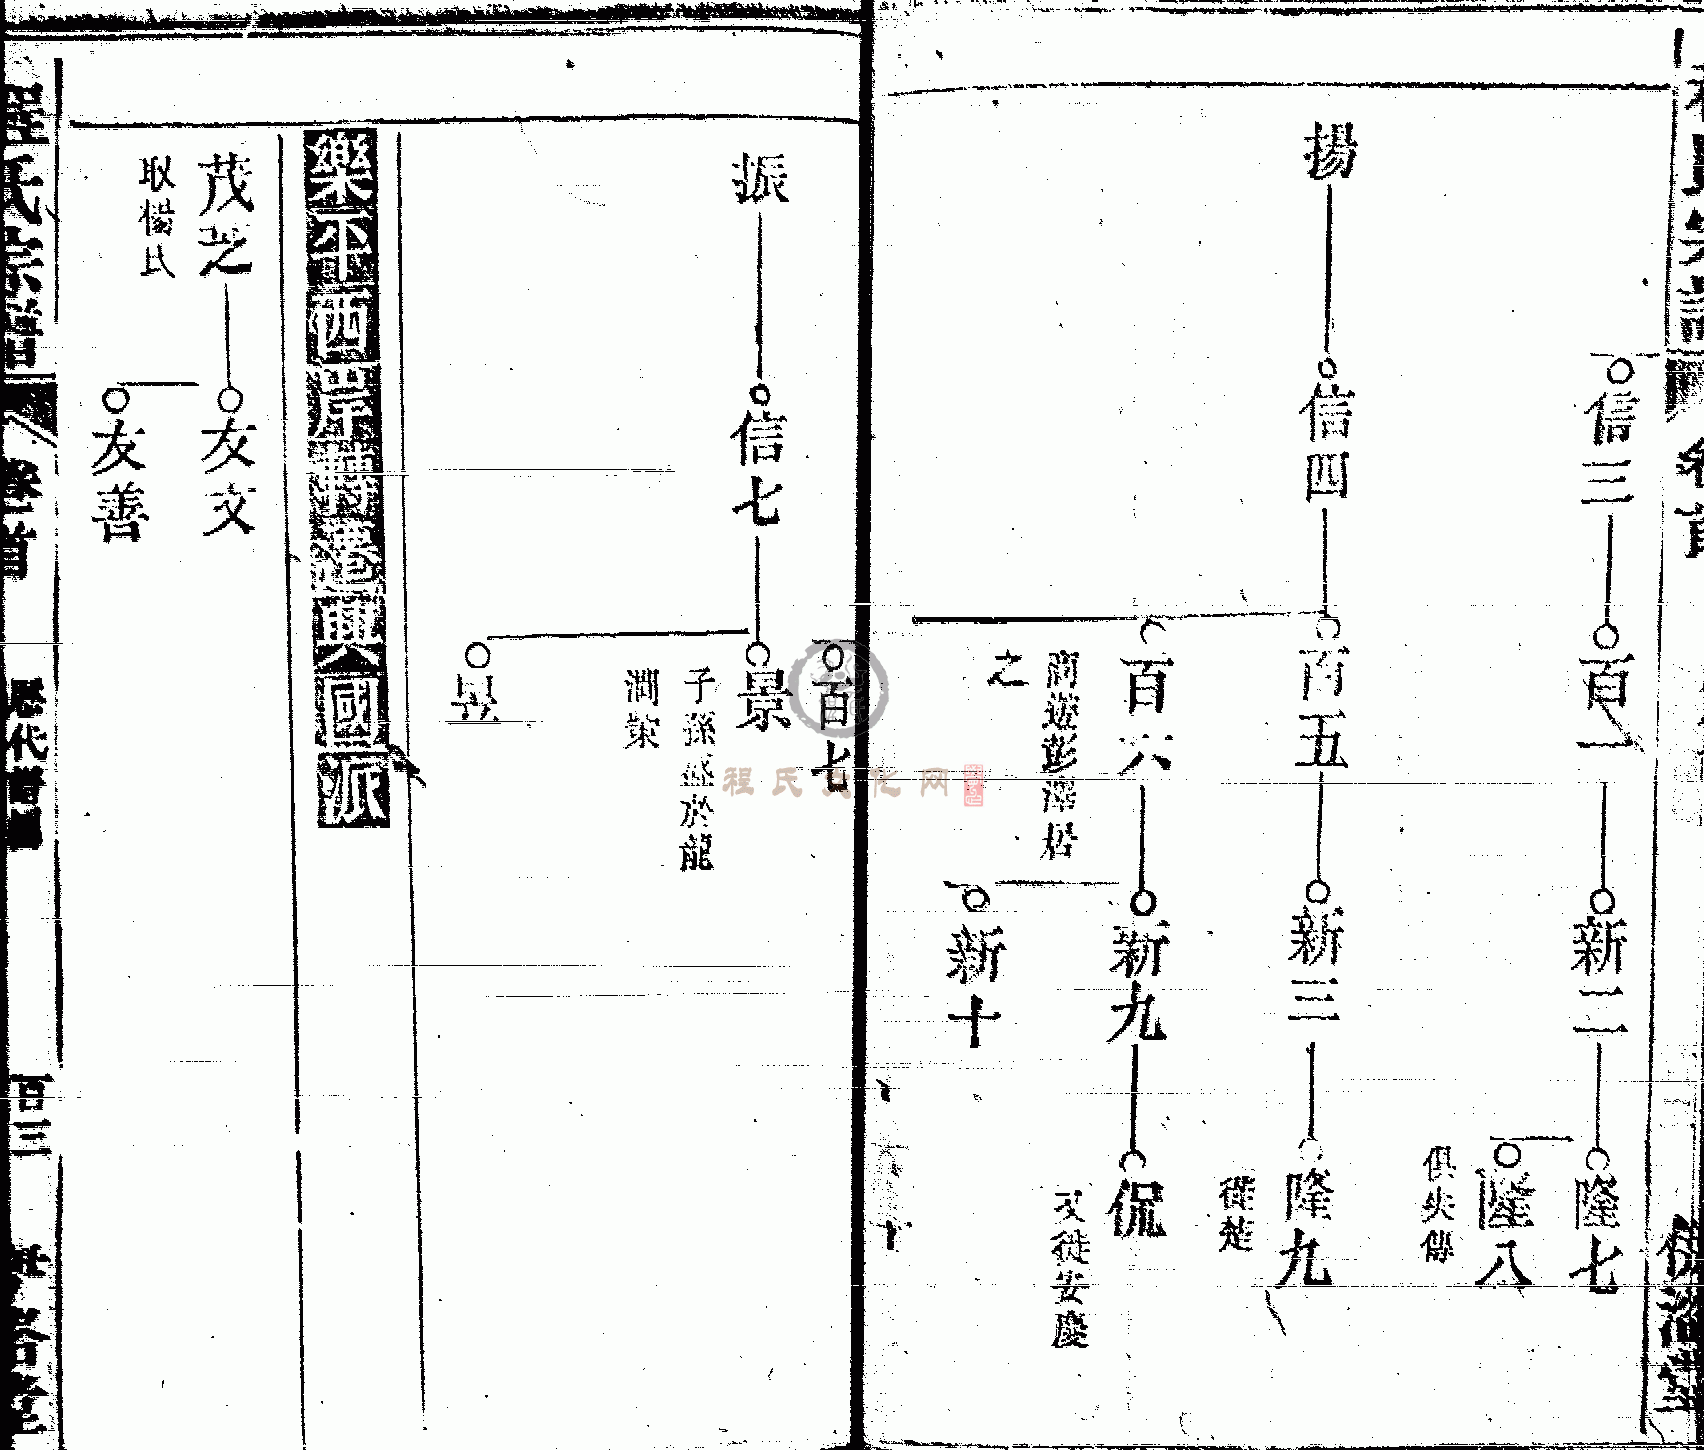 信三
百一
新二
隆七
隆八
俱失傳
揚
信四
百五
新三
隆九
從楚
百六
商遊彭澤居
之
新九
侃
又徙安慶
新十
百七
振
信七
景
子孫盛於龍
潤築
昱
樂平西岸轉遷興國派
茂芝
取楊氏
友文
友善
程氏宗譜
卷首
歷代譜圖
百三
程氏文化网